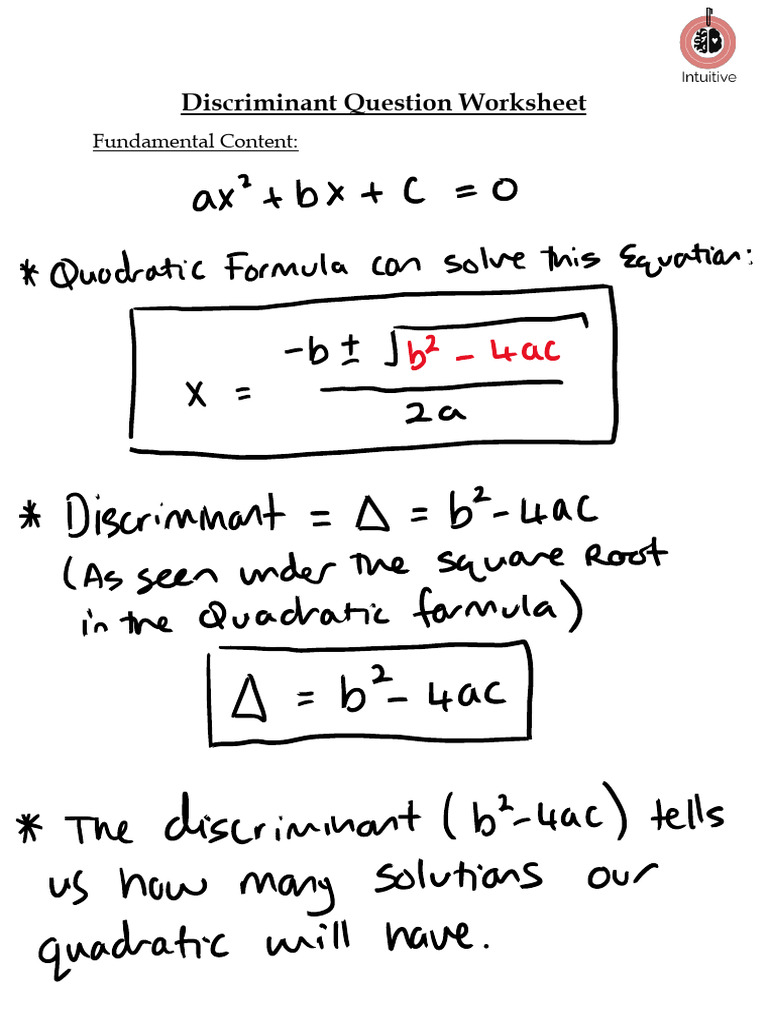 Intuitive
Discriminant Question Worksheet
Fundamental Content:
ax² + bx + c = 0
* Quadratic Formula can solve this Equation:
x = (-b ± √(b² - 4ac)) / 2a
* Discriminant = Δ = b² - 4ac
(As seen under the square Root
in the Quadratic formula)
Δ = b² - 4ac
* The discriminant (b² - 4ac) tells
us how many solutions our
quadratic will have.